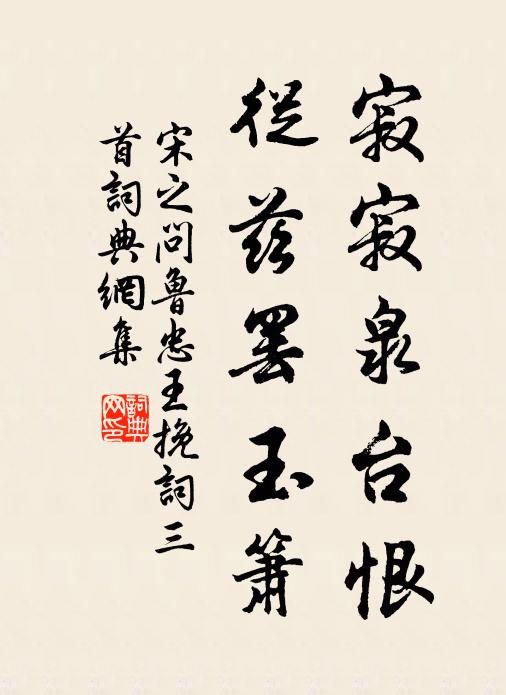 寂寂泉台恨
從茲罷玉簫
宋之問魯忠王挽詞三
首詞典網集
詞典
网印